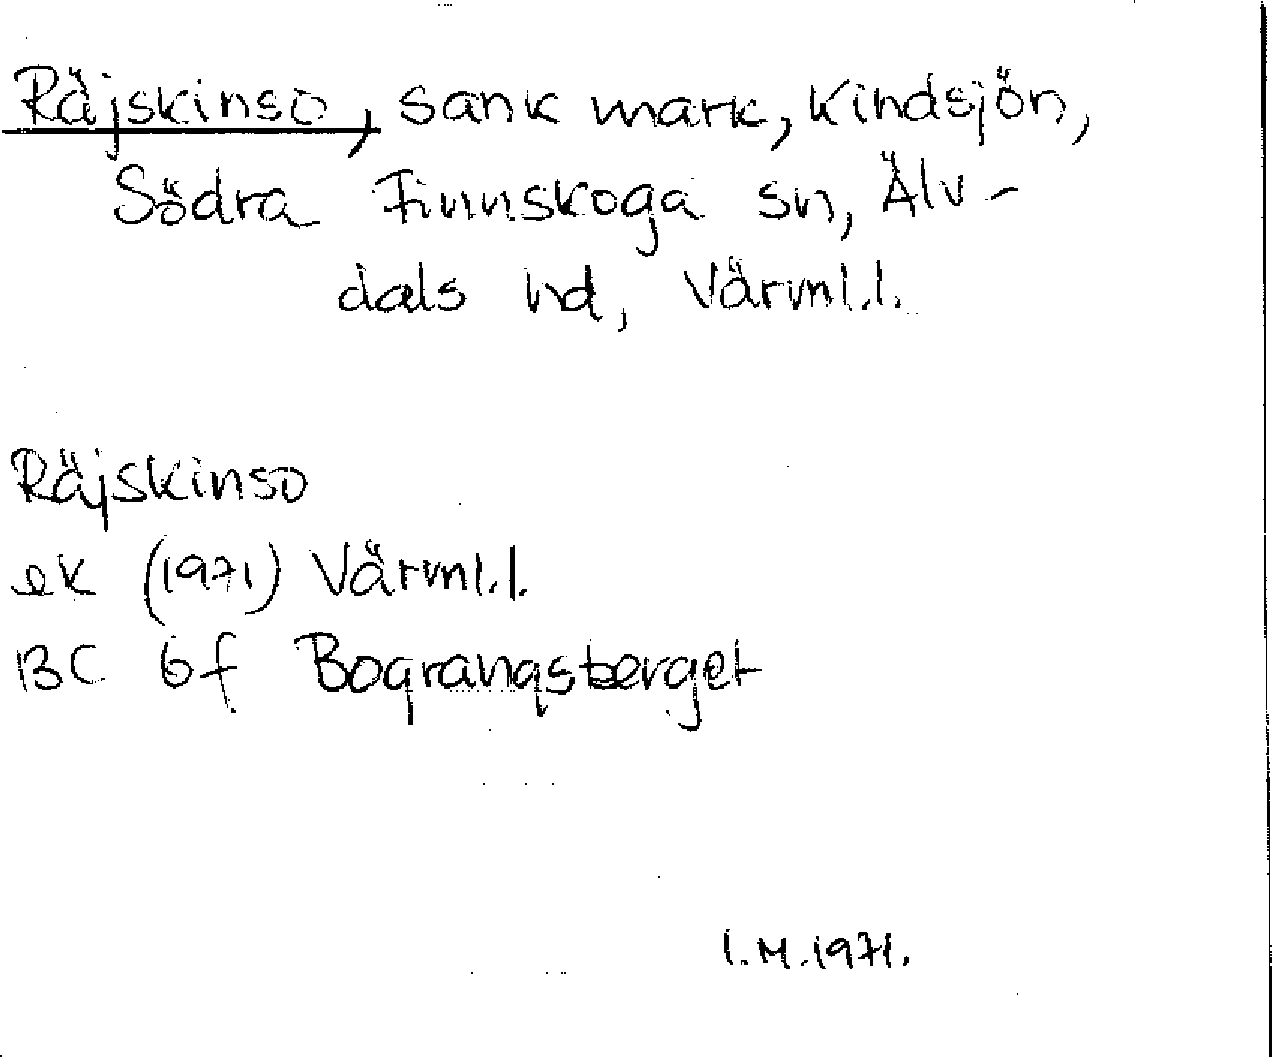 Räjskinso, sank mark, Kindsjön,
Södra Finnskoga sn, Älv-
dals hd, Värml.l.
Räjskinso
ek (1971) Värml.l.
BC 6f Bograngsberget
I.M.1971.